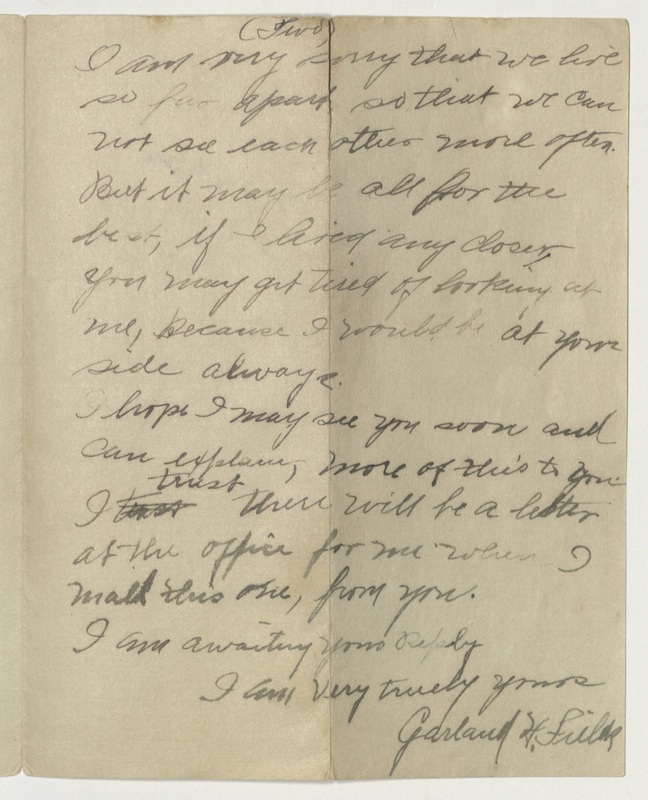 (Two)
I am very sorry that we live
so far apart, so that we can
not see each other more often.
But it may be all for the
best, if I lived any closer,
you may get tired of looking at
me, because I would be at your
side always.
I hope I may see you soon and
can explain, more of this to you.
trust
I trust there will be a letter
at the office for me when I
mail this one, from you.
I am awaiting your Reply
I am Very truely yours
Garland H. Fields